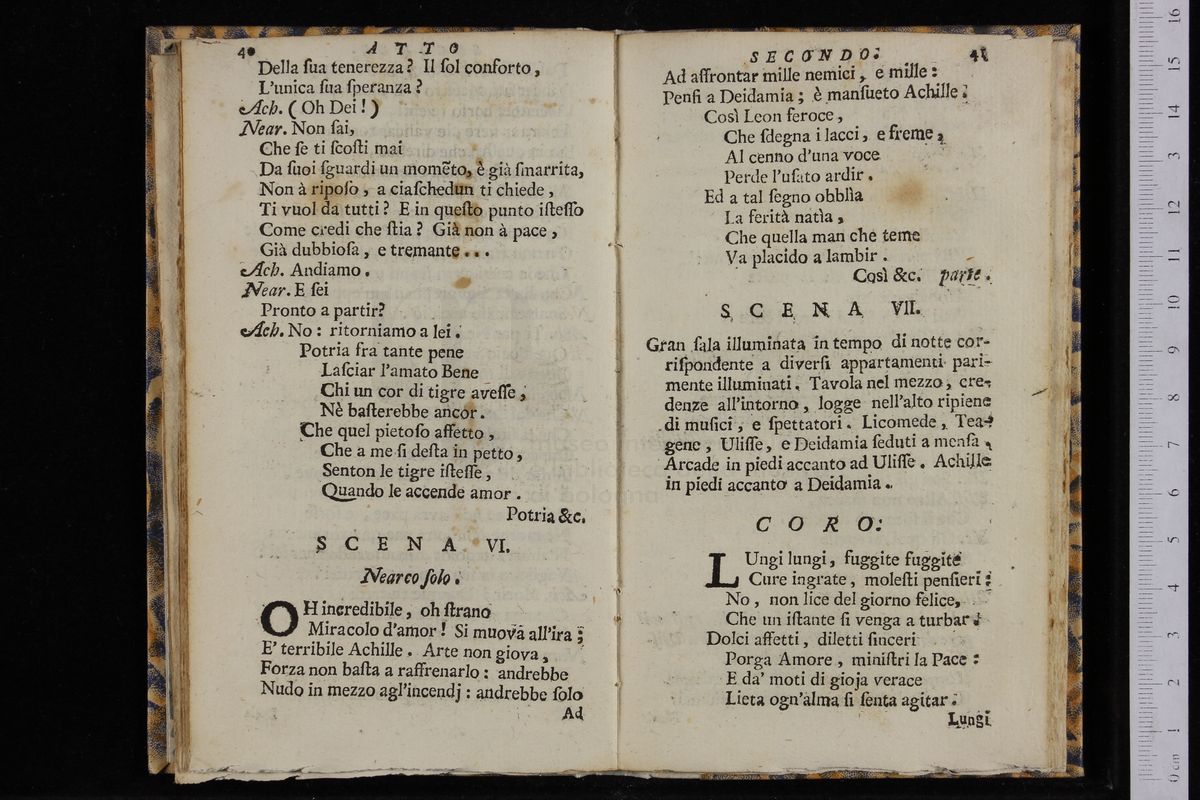 40 ATTO
Della ſua tenerezza? Il ſol conforto,
L'unica ſua ſperanza?
Ach. (Oh Dei!)
Near. Non ſai,
Che ſe ti ſcoſti mai
Da ſuoi ſguardi un momẽto, è già ſmarrita,
Non à ripoſo, a ciaſchedun ti chiede,
Ti vuol da tutti? E in queſto punto iſteſſo
Come credi che ſtia? Già non à pace,
Già dubbioſa, e tremante...
Ach. Andiamo.
Near. E ſei
Pronto a partir?
Ach. No: ritorniamo a lei.
Potria fra tante pene
Laſciar l'amato Bene
Chi un cor di tigre aveſſe,
Nè baſterebbe ancor.
Che quel pietoſo affetto,
Che a me ſi deſta in petto,
Senton le tigre iſteſſe,
Quando le accende amor.
Potria &c.
SCENA VI.
Nearco ſolo.
OH incredibile, oh ſtrano
Miracolo d'amor! Si muova all'ira;
E' terribile Achille. Arte non giova,
Forza non baſta a raffrenarlo: andrebbe
Nudo in mezzo agl'incendj: andrebbe ſolo
Ad
SECONDO. 41
Ad affrontar mille nemici, e mille:
Penſi a Deidamia; è manſueto Achille.
Così Leon feroce,
Che ſdegna i lacci, e freme,
Al cenno d'una voce
Perde l'uſato ardir.
Ed a tal ſegno obblìa
La ferità natìa,
Che quella man che teme
Va placido a lambir.
Così &c. parte.
SCENA VII.
Gran ſala illuminata in tempo di notte cor-
riſpondente a diverſi appartamenti pari-
mente illuminati. Tavola nel mezzo, cre-
denze all'intorno, logge nell'alto ripiene
di muſici, e ſpettatori. Licomede, Tea-
gene, Uliſſe, e Deidamia ſeduti a menſa,
Arcade in piedi accanto ad Uliſſe. Achille
in piedi accanto a Deidamia.
CORO.
LUngi lungi, fuggite fuggite
Cure ingrate, moleſti penſieri:
No, non lice del giorno felice,
Che un iſtante ſi venga a turbar.
Dolci affetti, diletti ſinceri
Porga Amore, miniſtri la Pace:
E da' moti di gioja verace
Lieta ogn'alma ſi ſenta agitar.
Lungi